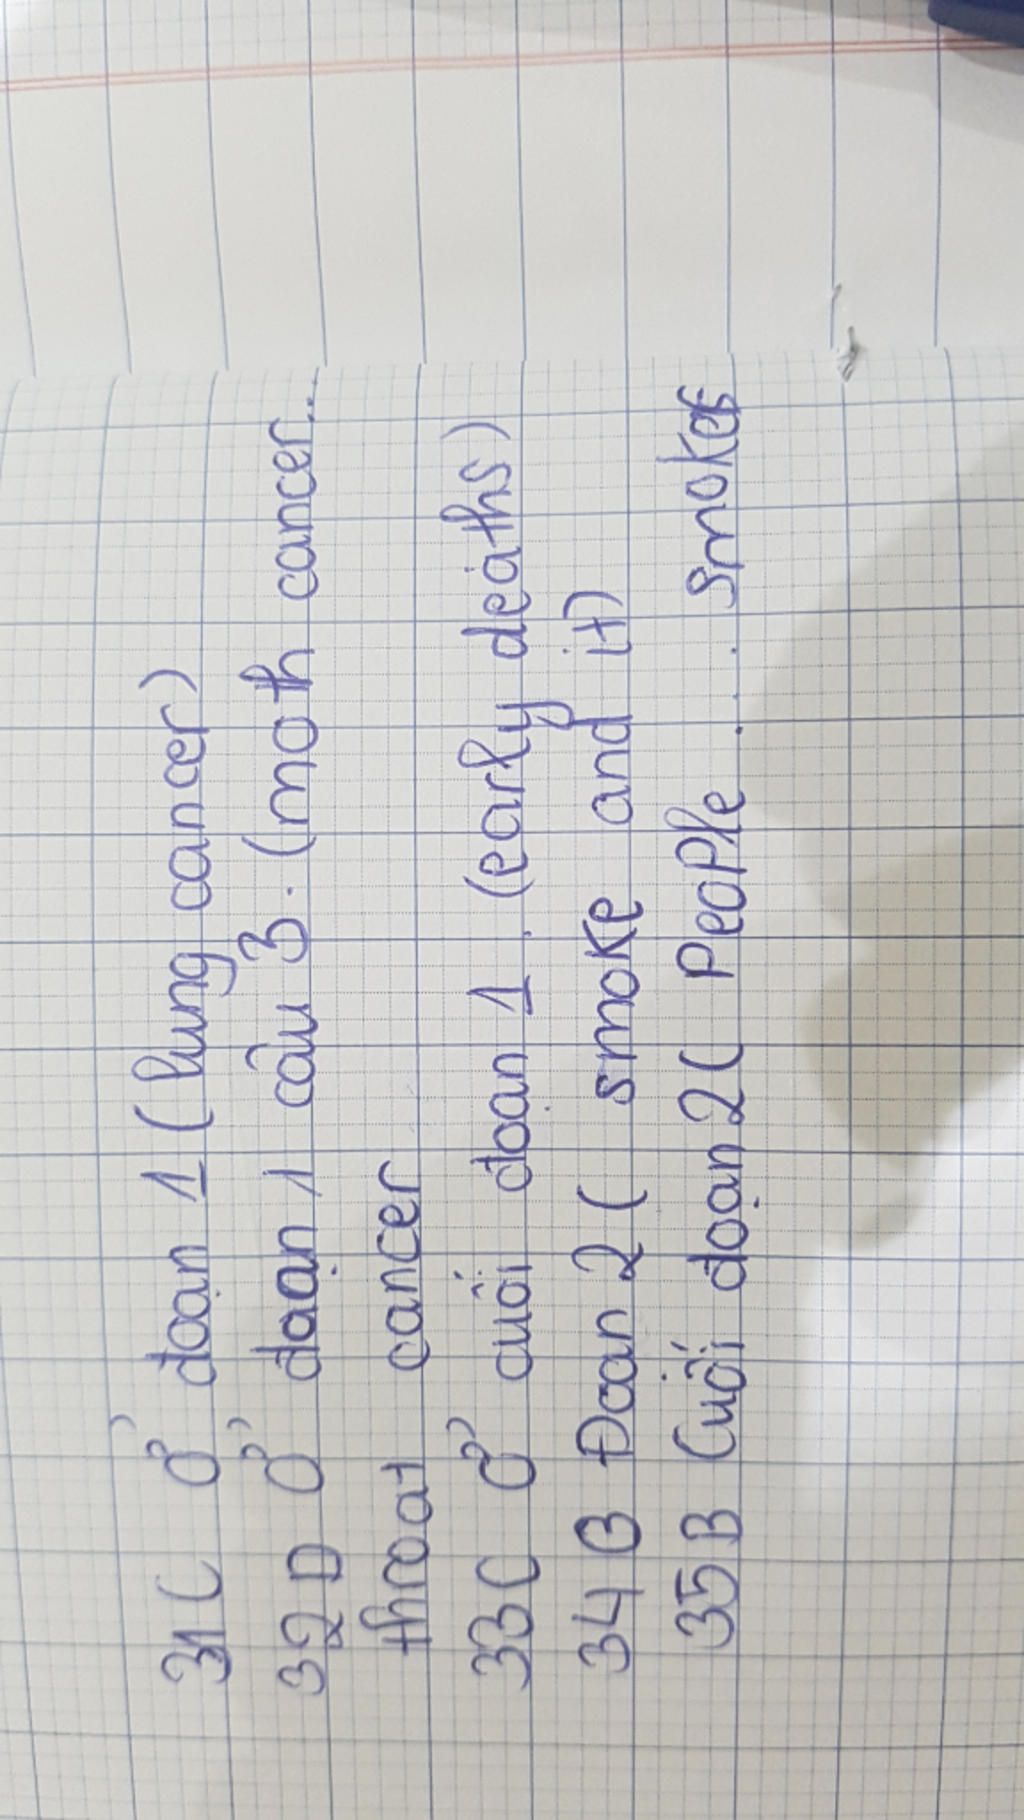 31C Ở đoạn 1 (lung cancer)
32D Ở đoạn 1 câu 3. (moth cancer...
throat cancer
33C Ở cuối đoạn 1. (early deaths)
34B Đoạn 2 ( smoke and it)
35B Cuối đoạn 2 ( People .... smokes